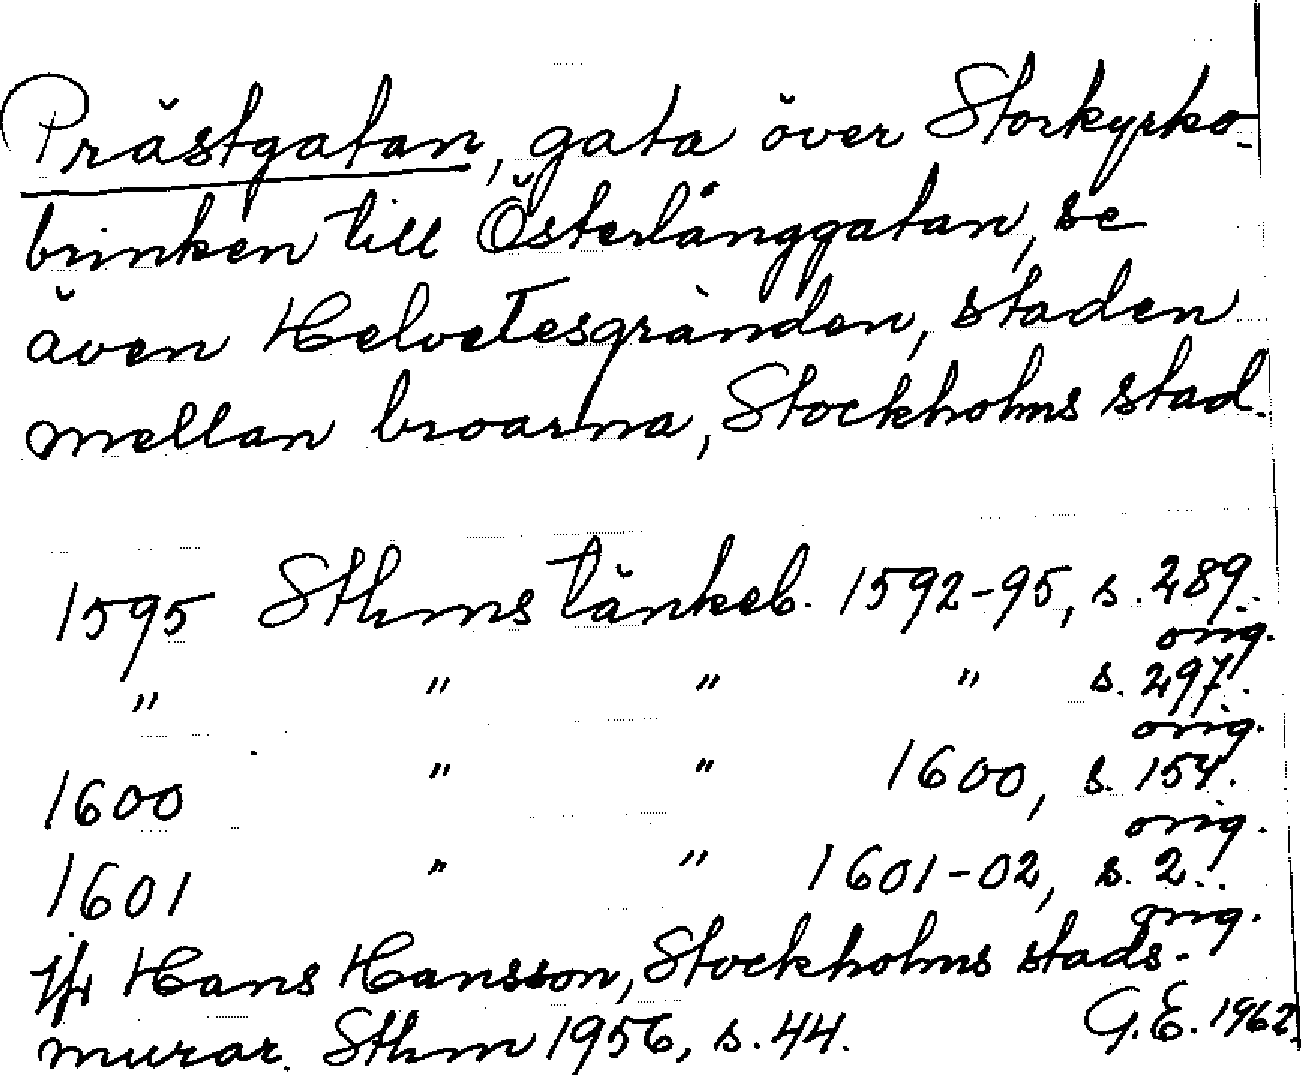 Prästgatan, gata över Storkyrko-
brinken till Österlånggatan, se
även Helvetesgränden, staden
mellan broarna, Stockholms stad.
1595 Sthms tänkeb. 1592-95, s. 289.
orig.
" " " " s. 297.
orig.
1600 " " 1600, s. 154.
orig.
1601 " " 1601-02, s. 2.
orig.
Jfr Hans Hansson, Stockholms stads-
murar. Sthm 1956, s. 44. G.E. 1962.